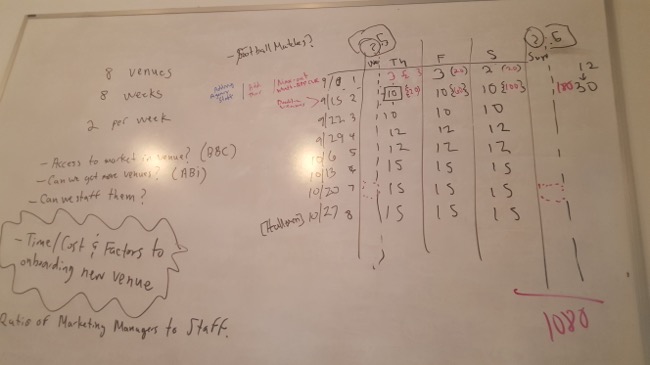 - Football Matches?
2
5
2
:5
8 venues
8 weeks
2 per week
Th F S Sun
9/8 1 3 3 (20) 2 (20) 12
9/15 2 10 10 10 {100} 180 30
9/22 3 10 10 10
9/29 4 12 12 12
10/6 5 12 12 12
10/13 15 15 15
10/20 7 15 15 15
[Halloween] 10/27 8 15 15 15
1080
- Access to market in venue? (BBC)
- Can we get more venues? (ABi)
- Can we staff them?
- Time/Cost & Factors to
onboarding new venue
Ratio of Marketing Managers to Staff.